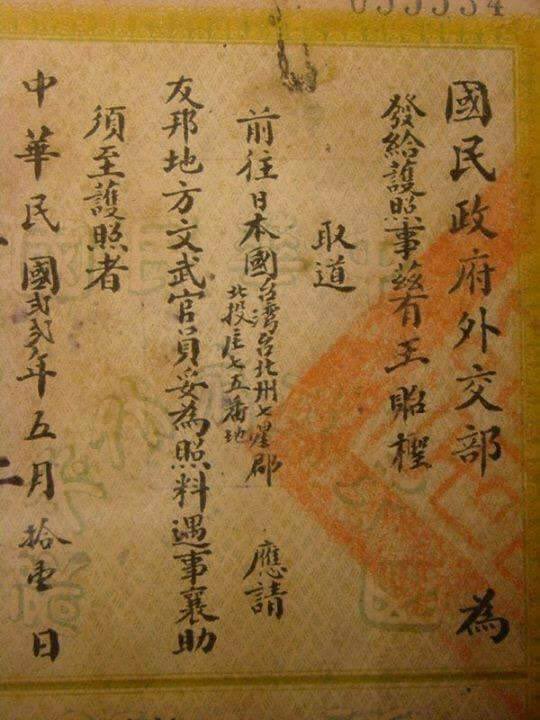 國民政府外交部 為
發給護照事茲有王昭
取道
前往日本國台灣台北州七星郡
北投庄七五番地 應請
友邦地方文武官員妥為照料遇事襄助
須至護照者
中華民國貳貳年五月拾壹日